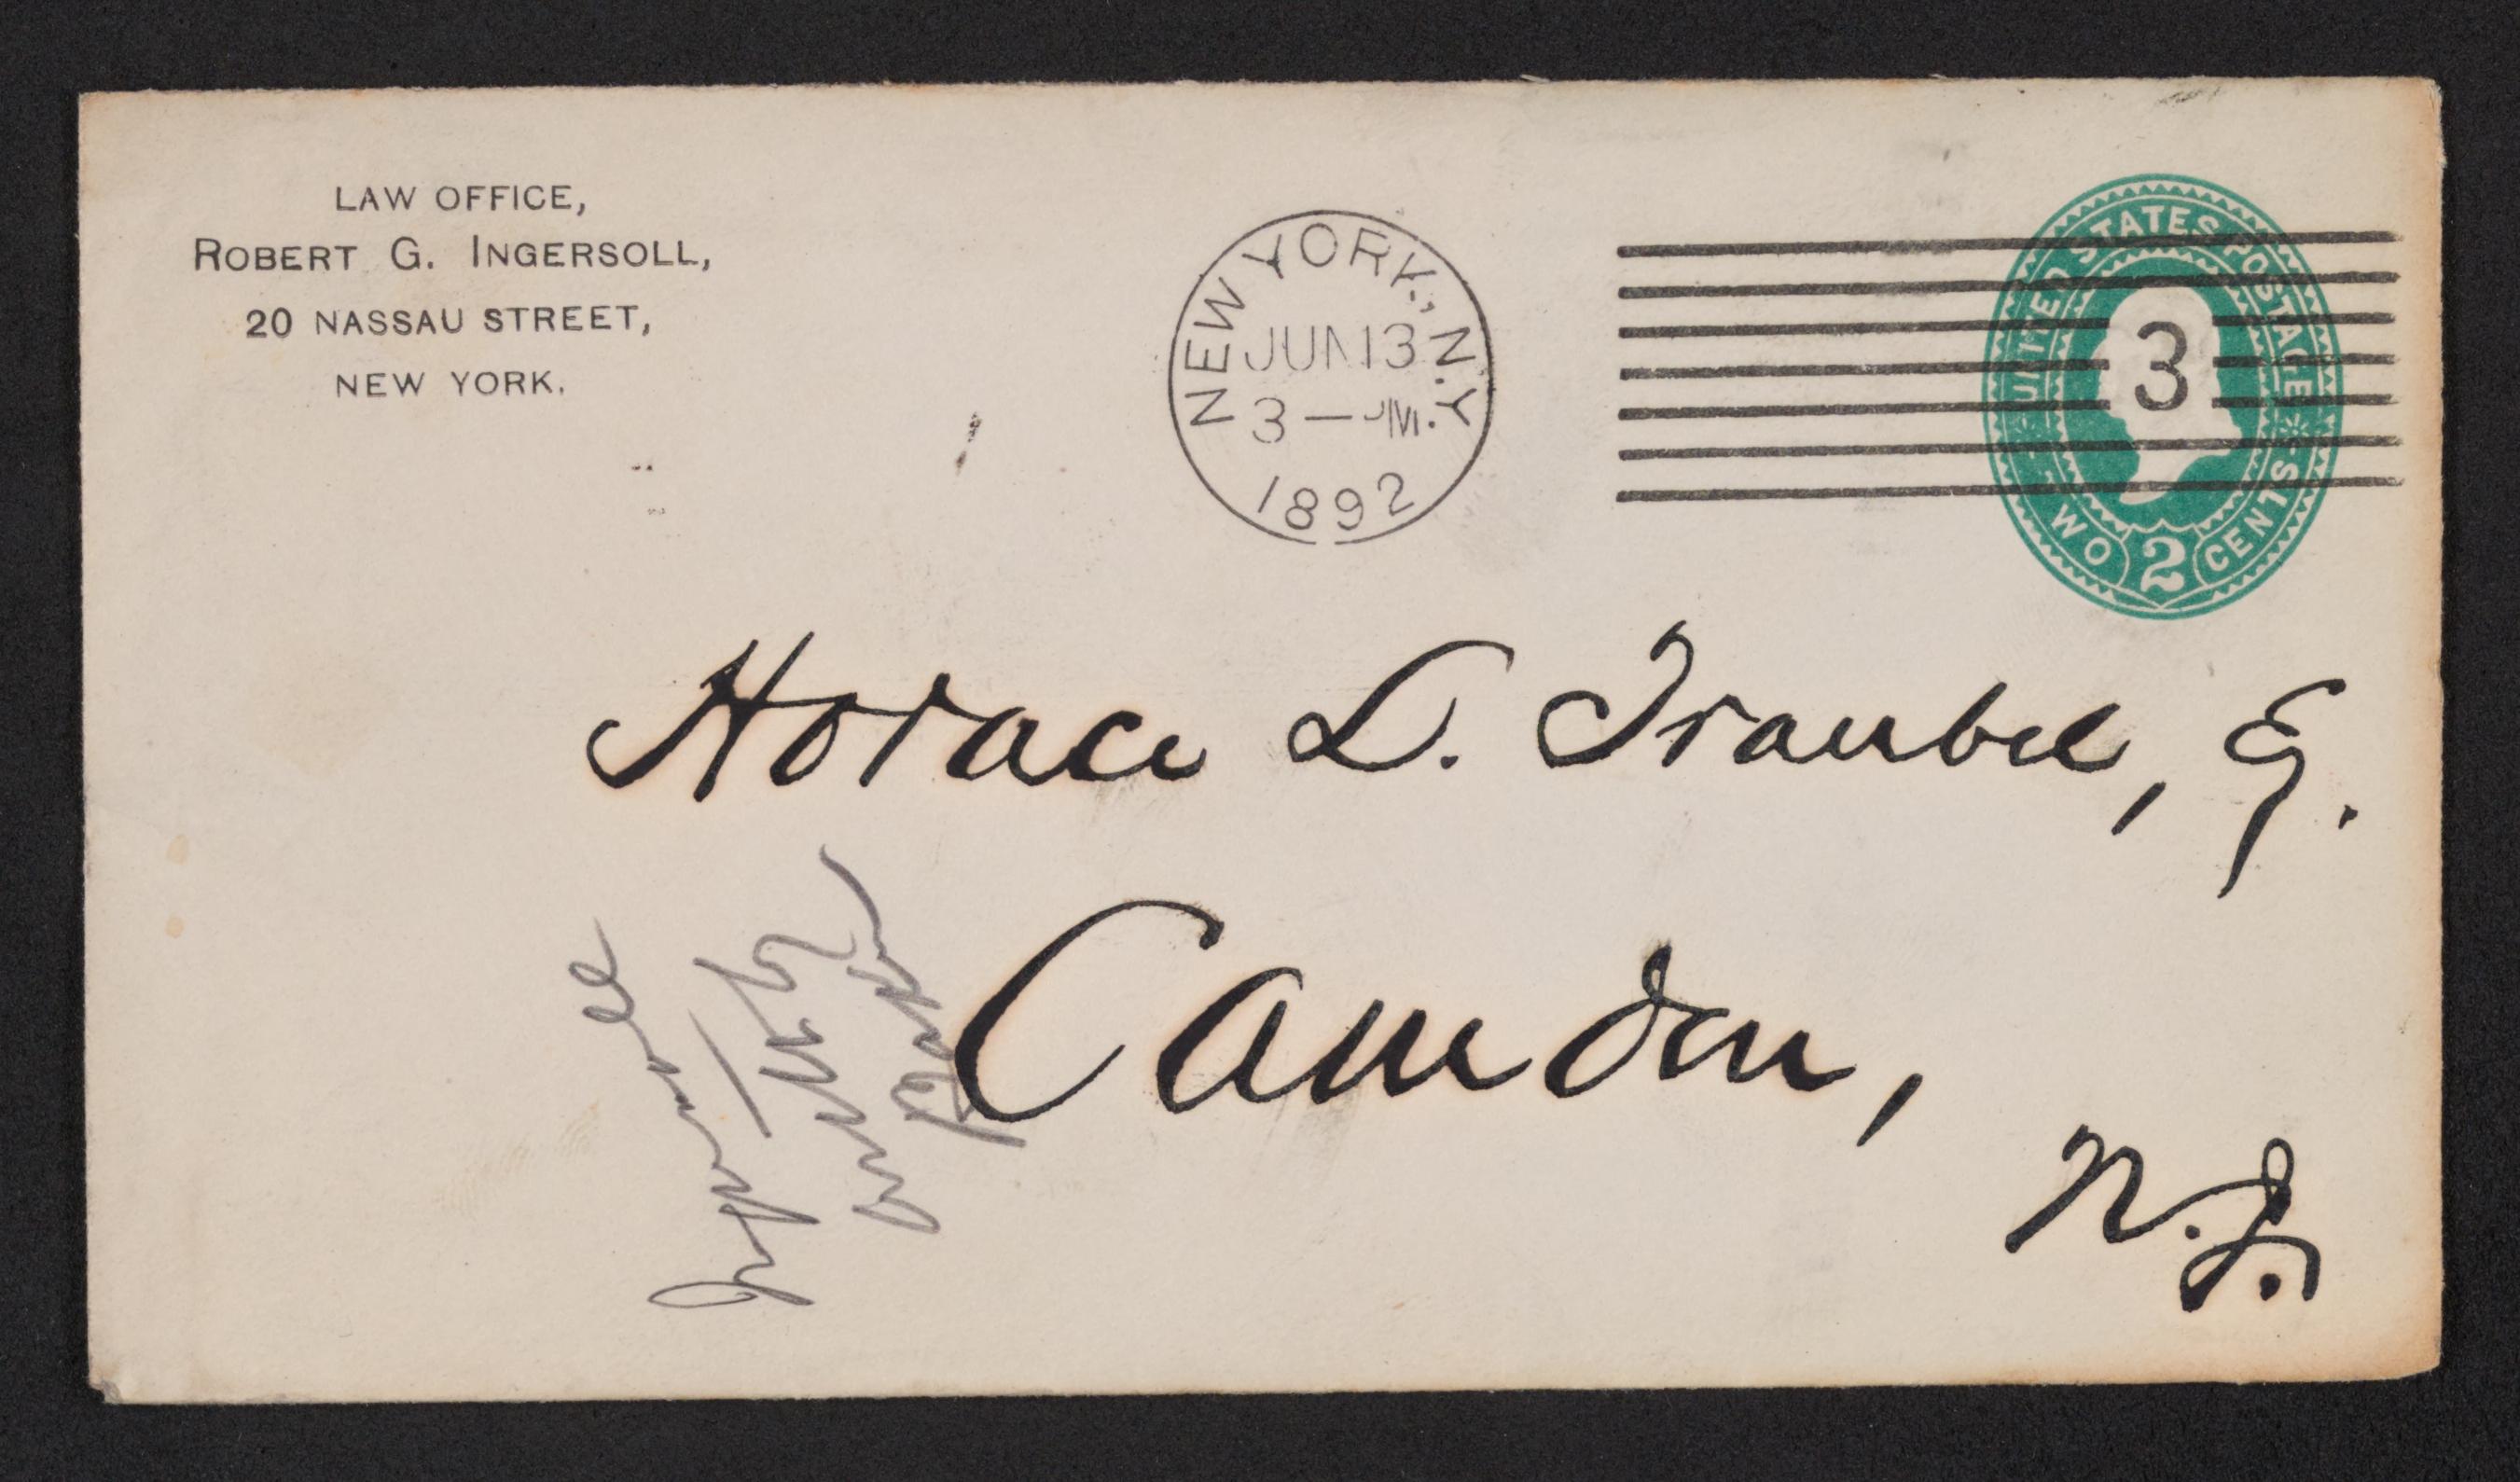 LAW OFFICE,
ROBERT G. INGERSOLL,
20 NASSAU STREET,
NEW YORK.
NEW YORK, N.Y.
JUN 13
3 — PM.
1892
UNITED STATES POSTAGE
3
TWO 2 CENTS
Horace L. Traubel, Eq.
Camden,
N.J.
Ingersoll